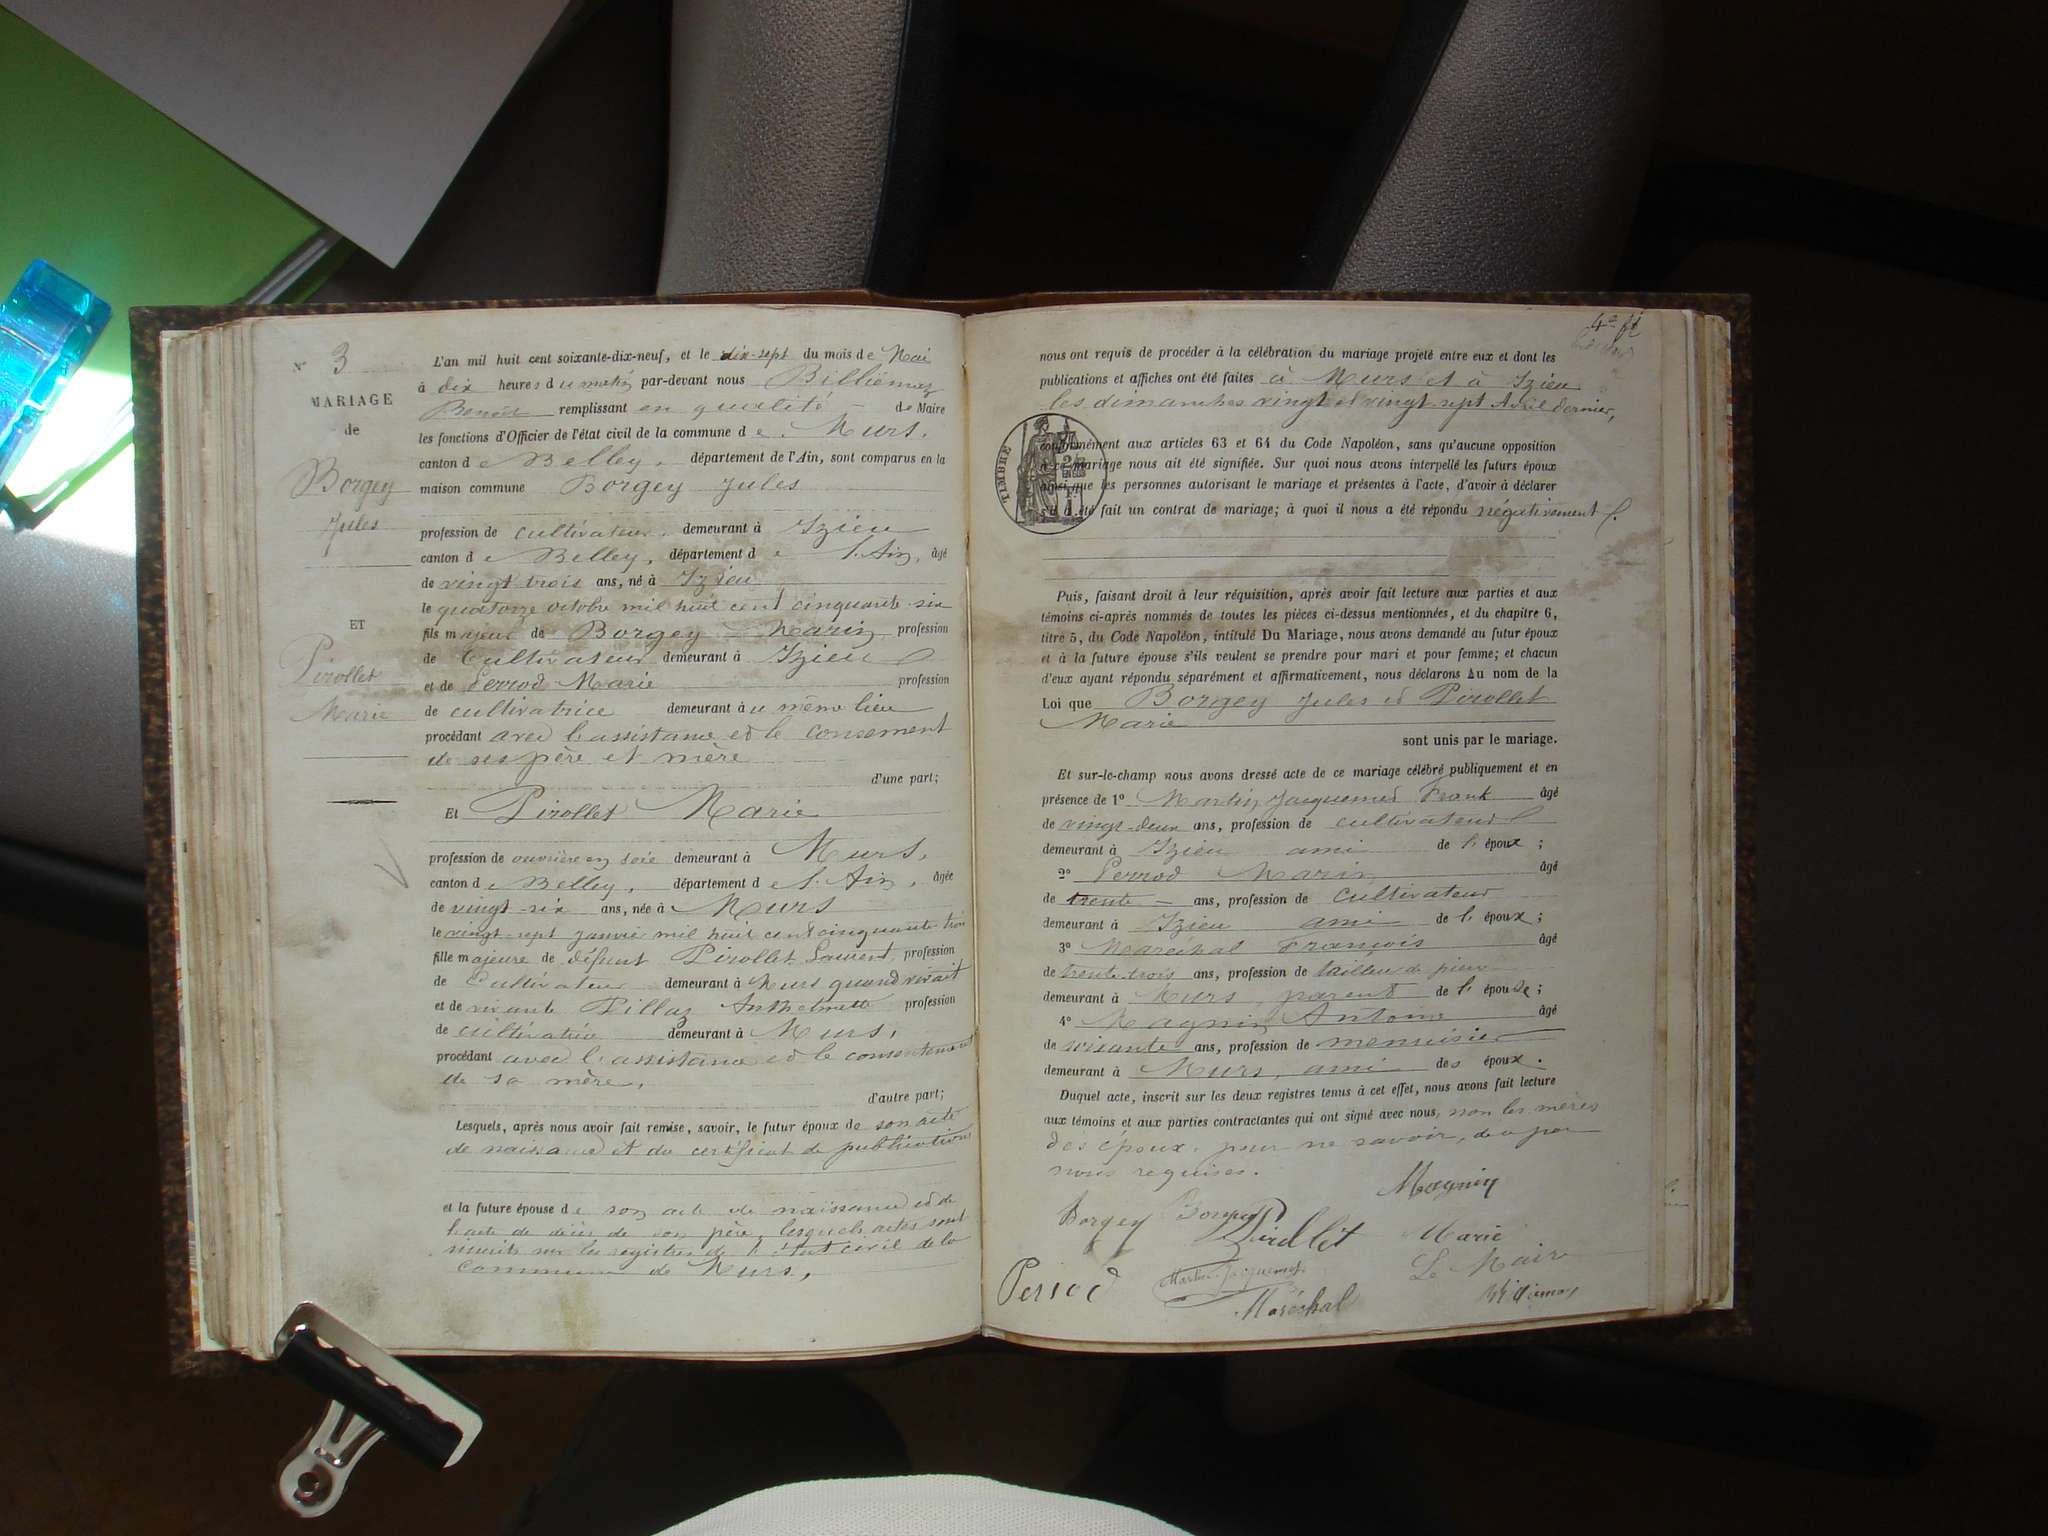 N° 3
MARIAGE
de
Borgey
Jules
ET
Pirollet
Marie
L'an mil huit cent soixante-dix-neuf, et le dix-sept du mois de Mai
à dix heures du matin par-devant nous Billiémaz
Benoît remplissant en qualité de Maire
les fonctions d'Officier de l'état civil de la commune de Murs.
canton de Belley, département de l'Ain, sont comparus en la
maison commune Borgey Jules
profession de cultivateur, demeurant à Izieu
canton de Belley, département de l'Ain, âgé
de vingt trois ans, né à Izieu
le quatorze octobre mil huit cent cinquante-six
fils majeur de Borgey Marin profession
de Cultivateur demeurant à Izieu
et de Perrod Marie profession
de cultivatrice demeurant au même lieu
procédant avec l'assistance et le consement
de ses père et mère
d'une part;
Et Pirollet Marie
profession de ouvrière en soie demeurant à Murs,
canton de Belley, département de l'Ain, âgée
de vingt-six ans, née à Murs
le vingt-sept janvier mil huit cent cinquante trois
fille majeure de défunt Pirollet Laurent, profession
de Cultivateur demeurant à Murs quand vivait
et de vivante Pillaz Anthelmette profession
de cultivatrice demeurant à Murs,
procédant avec l'assistance et le consentement
de sa mère,
d'autre part;
Lesquels, après nous avoir fait remise, savoir, le futur époux de son acte
de naissance et du certificat de publication
et la future épouse de son acte de naissance et de
l'acte de décès de son père, lesquels actes sont
inscrits sur les registres de l'état civil de la
commune de Murs,
nous ont requis de procéder à la célébration du mariage projeté entre eux et dont les
publications et affiches ont été faites à Murs et à Izieu
les dimanches vingt et vingt-sept Avril dernier,
TIMBRE
conformément aux articles 63 et 64 du Code Napoléon, sans qu'aucune opposition
à ce mariage nous ait été signifiée. Sur quoi nous avons interpellé les futurs époux
ainsi que les personnes autorisant le mariage et présentes à l'acte, d'avoir à déclarer
s'il a été fait un contrat de mariage; à quoi il nous a été répondu négativement
Puis, faisant droit à leur réquisition, après avoir fait lecture aux parties et aux
témoins ci-après nommés de toutes les pièces ci-dessus mentionnées, et du chapitre 6,
titre 5, du Code Napoléon, intitulé Du Mariage, nous avons demandé au futur époux
et à la future épouse s'ils veulent se prendre pour mari et pour femme; et chacun
d'eux ayant répondu séparément et affirmativement, nous déclarons Au nom de la
Loi que Borgey Jules et Pirollet
Marie
sont unis par le mariage.
Et sur-le-champ nous avons dressé acte de ce mariage célébré publiquement et en
présence de 1° Martin Jacquemet Frank âgé
de vingt-deux ans, profession de cultivateur
demeurant à Izieu ami de l'époux;
2° Perrod Marin âgé
de trente ans, profession de Cultivateur
demeurant à Izieu ami de l'époux;
3° Maréchal François âgé
de trente-trois ans, profession de tailleur de pierre
demeurant à Murs, parent de l'épouse;
4° Magnin Antoine âgé
de soixante ans, profession de menuisier
demeurant à Murs, ami des époux.
Duquel acte, inscrit sur les deux registres tenus à cet effet, nous avons fait lecture
aux témoins et aux parties contractantes qui ont signé avec nous, non les mères
des époux, pour ne savoir, de ce par
nous requises.
Magnin
Borgey Borgey Pirollet Marie
Le Maire
Perrod Maréchal Billiémaz